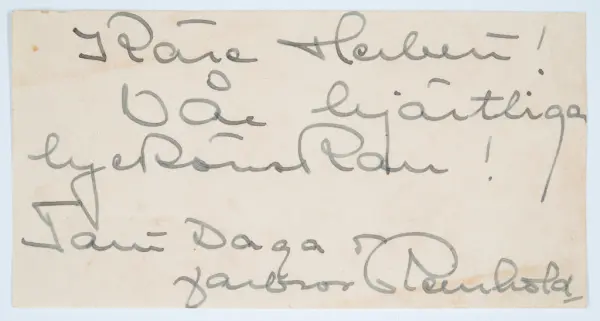 Käre Herbert!
Vår hjärtliga
lyckönskan!
Tant Daga o
farbror Reinhold